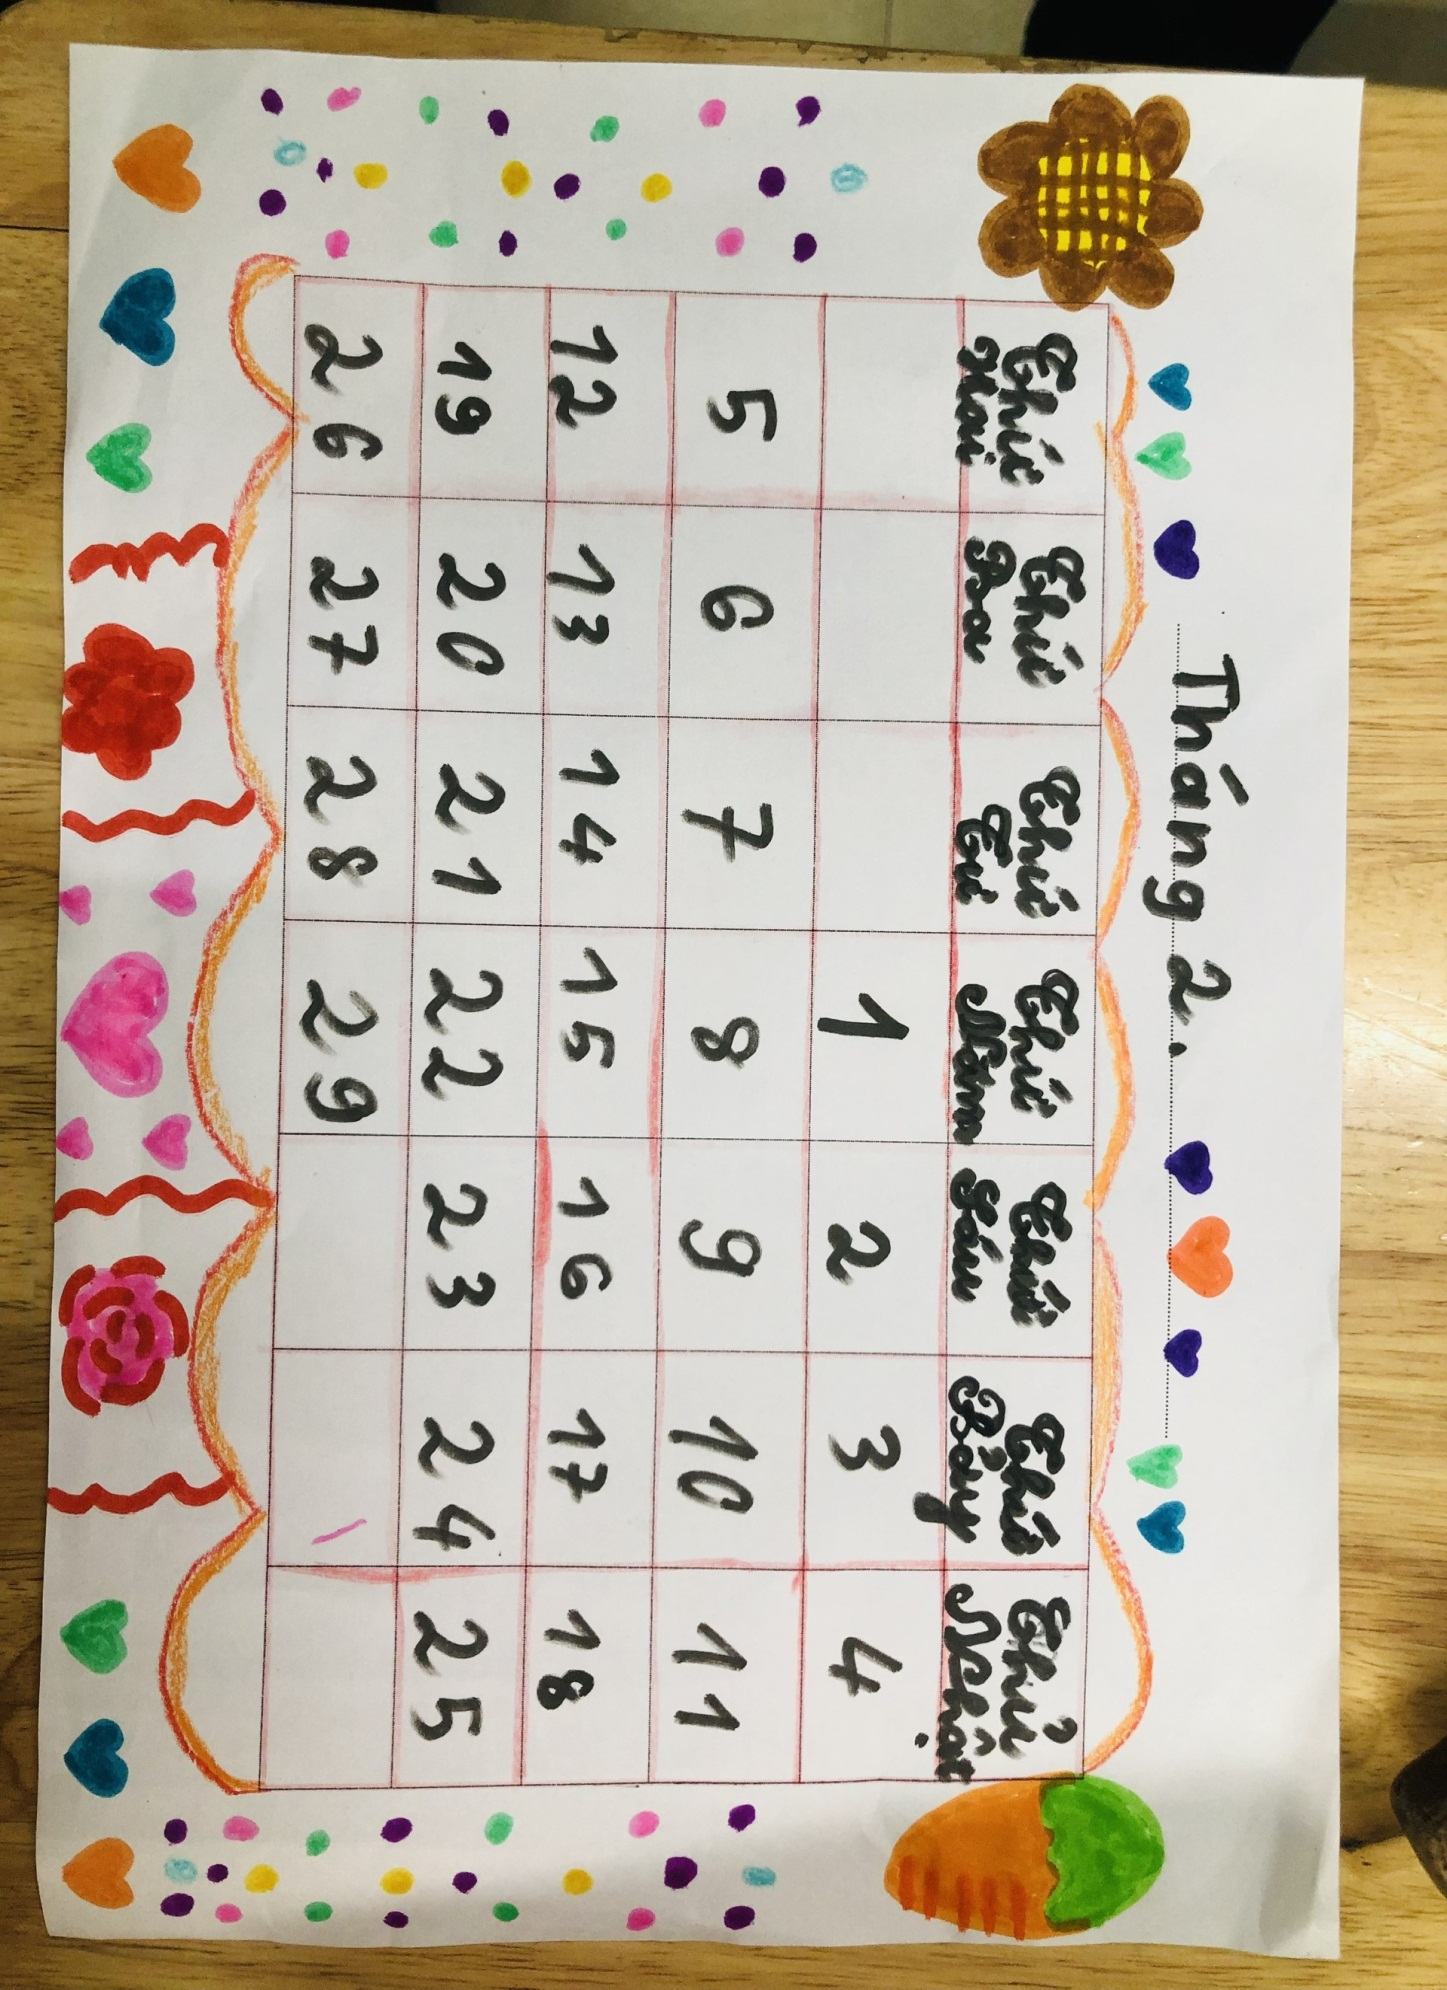 Tháng 2.
Thứ Hai Thứ Ba Thứ Tư Thứ Năm Thứ Sáu Thứ Bảy Chủ Nhật
1 2 3 4
5 6 7 8 9 10 11
12 13 14 15 16 17 18
19 20 21 22 23 24 25
26 27 28 29